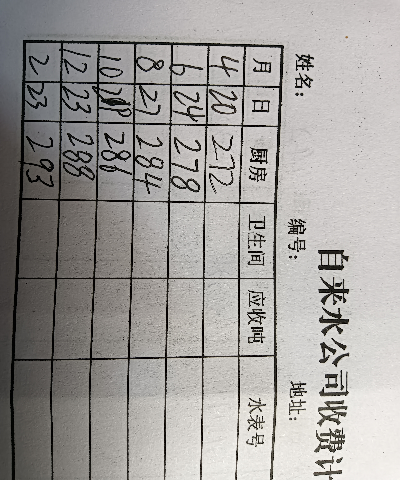 自来水公司收费计
姓名: 编号: 地址:
月 日 厨房 卫生间 应收吨 水表号
4 20 272
6 24 278
8 27 284
10 286
12 23 288
2 23 293